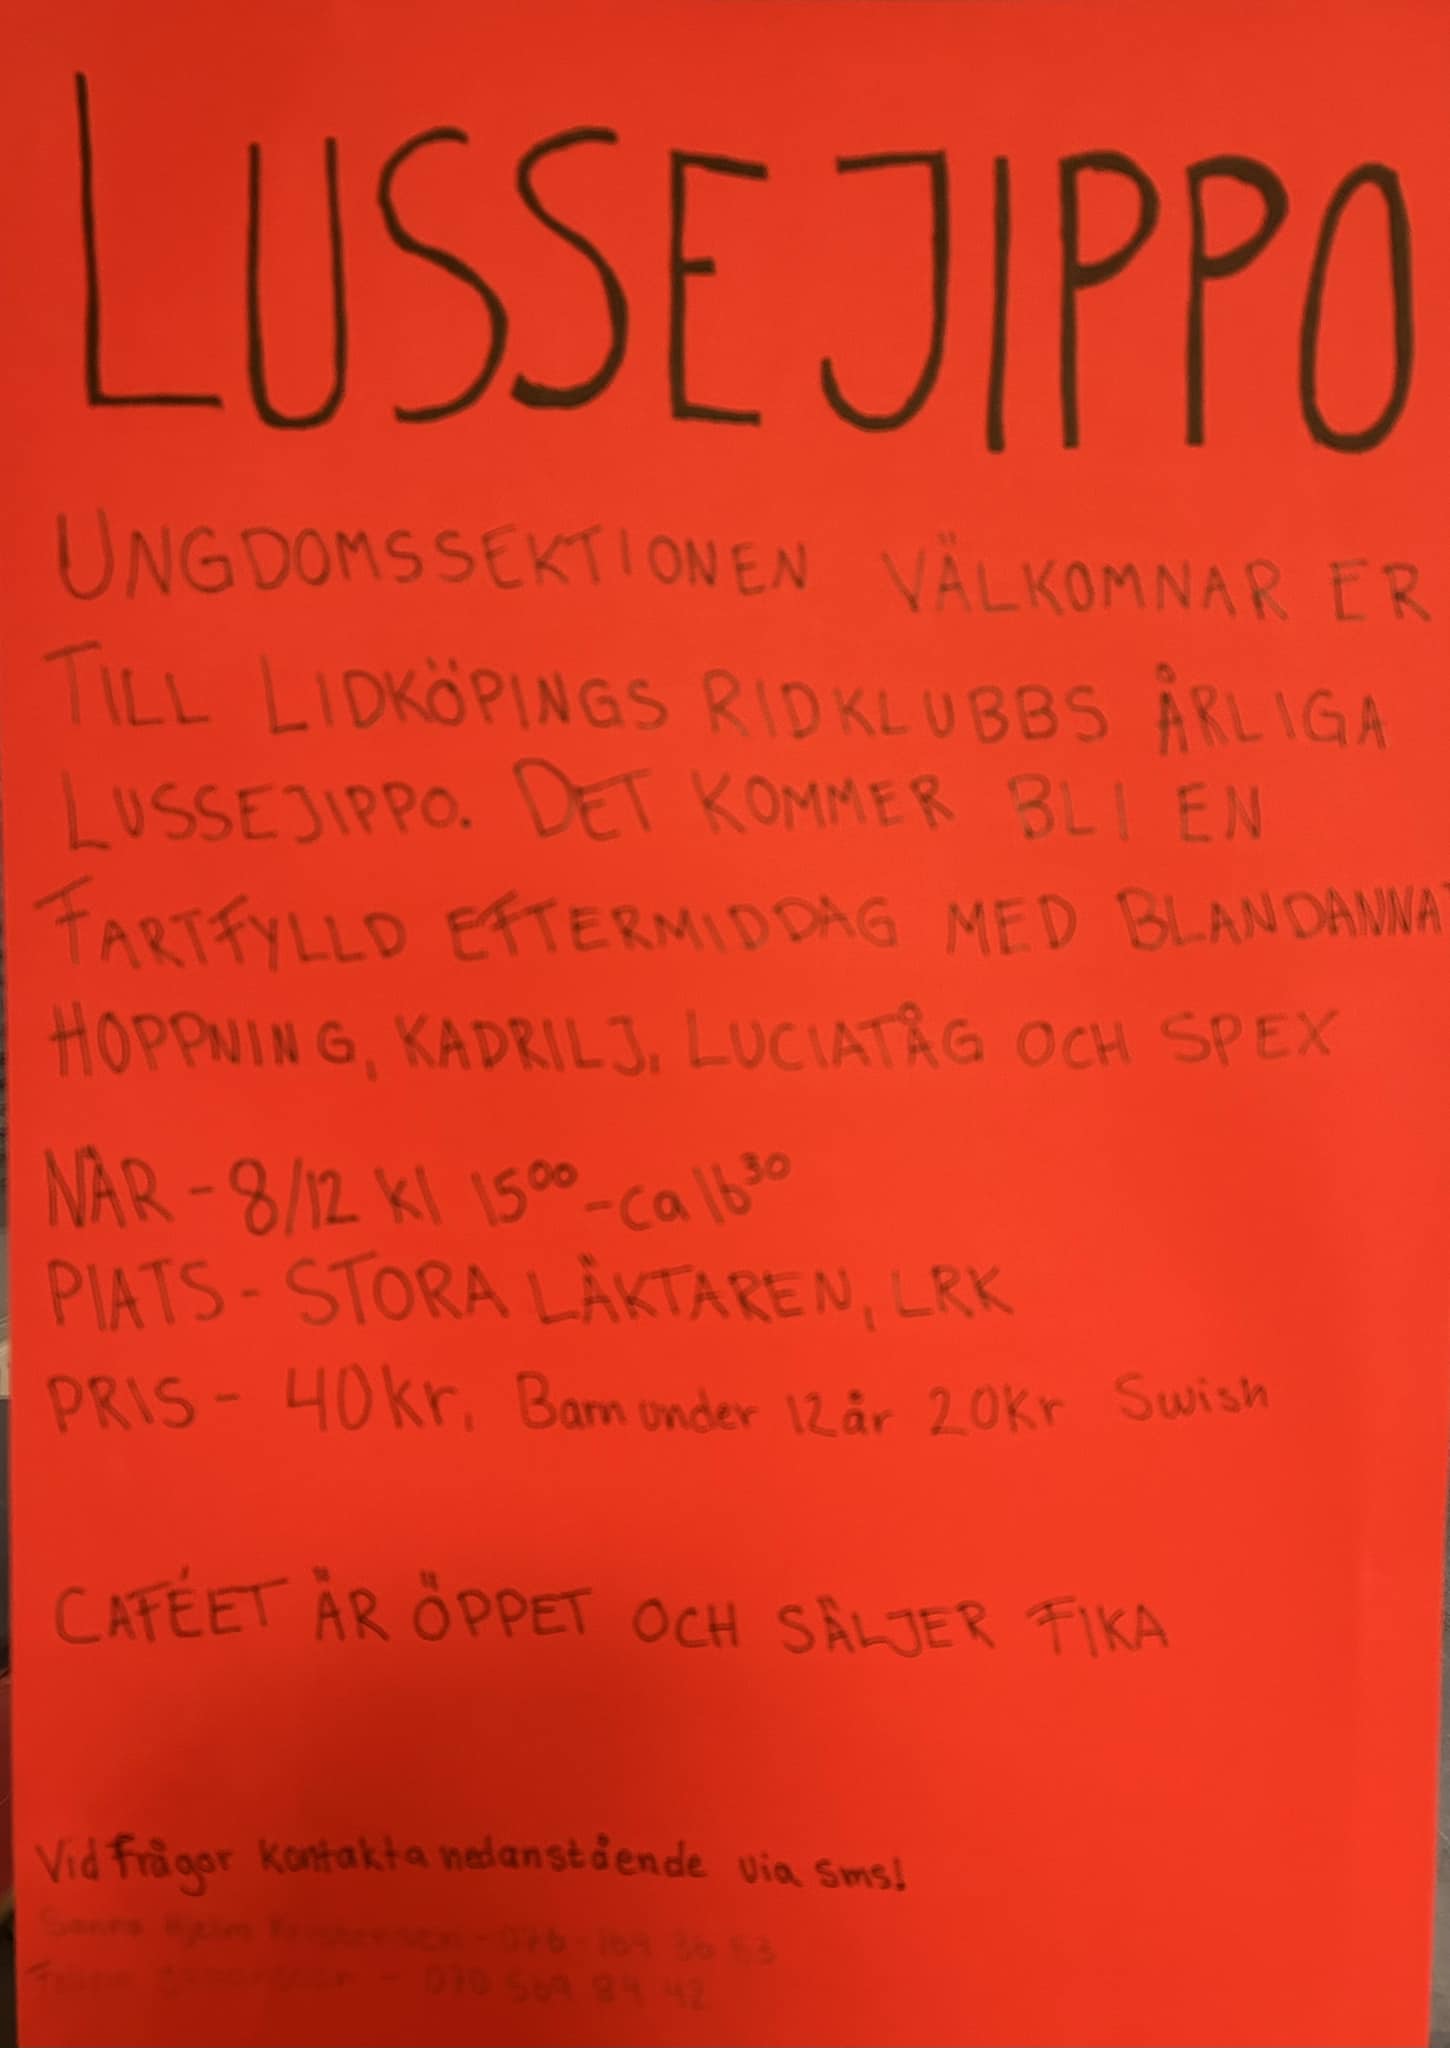 LUSSEJIPPO
UNGDOMSSEKTIONEN VÄLKOMNAR ER
TILL LIDKÖPINGS RIDKLUBBS ÅRLIGA
LUSSEJIPPO. DET KOMMER BLI EN
FARTFYLLD EFTERMIDDAG MED BLANDANNAT
HOPPNING, KADRILJ, LUCIATÅG OCH SPEX
NÄR - 8/12 Kl 15⁰⁰ - ca 16³⁰
PlATS - STORA LÄKTAREN, LRK
PRIS - 40kr, Barn under 12 år 20Kr Swish
CAFÉET ÄR ÖPPET OCH SÄLJER FIKA
Vid frågor kontakta nedanstående via sms!
Sanna Hjelm - 076-169 36 53
- 070 569 84 42